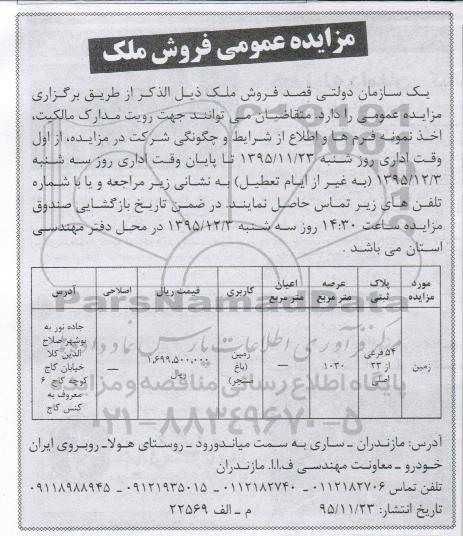 مزایده عمومی فروش ملک
یک سازمان دولتی قصد فروش ملک ذیل الذکر از طریق برگزاری
مزایده عمومی را دارد. متقاضیان می توانند جهت رویت مدارک مالکیت،
اخذ نمونه فرم ها و اطلاع از شرایط و چگونگی شرکت در مزایده، از اول
وقت اداری روز شنبه ۱۳۹۵/۱۱/۲۳ تا پایان وقت اداری روز سه شنبه
۱۳۹۵/۱۲/۳ (به غیر از ایام تعطیل) به نشانی زیر مراجعه و یا با شماره
تلفن های زیر تماس حاصل نمایند. در ضمن تاریخ بازگشایی صندوق
مزایده ساعت ۱۴:۳۰ روز سه شنبه ۱۳۹۵/۱۲/۳ در محل دفتر مهندسی
استان می باشد .
مورد مزایده | پلاک ثبتی | عرصه متر مربع | اعیان متر مربع | کاربری | قیمت ریال | اصلاحی | آدرس
زمین | ۵۴ فرعی از ۲۳ اصلی | ۱۰۳۰ | — | زمین (باغ مشجر) | ۱,۶۹۹,۵۰۰,۰۰۰ ریال | — | جاده نور به نوشهر صلاح الدین کلا خیابان کاج کوچه کاج ۶ معروف به کنس کاج
ParsNamadData
مرکز فرآوری اطلاعات پارس نماد داده ها
پایگاه اطلاع رسانی مناقصه و مزایده
۰۲۱-۸۸۳۴۹۶۷۰-۵
آدرس: مازندران ـ ساری به سمت میاندورود ـ روستای هولا ـ روبروی ایران
خودرو ـ معاونت مهندسی ف.ا.ا. مازندران
تلفن تماس ۰۱۱۲۱۸۲۷۰۶ ـ ۰۱۱۲۱۸۲۷۴۰ ـ ۰۹۱۲۱۹۳۵۰۱۵ ـ ۰۹۱۱۸۹۸۸۹۴۵
تاریخ انتشار: ۹۵/۱۱/۲۳ م ـ الف ۲۲۵۶۹